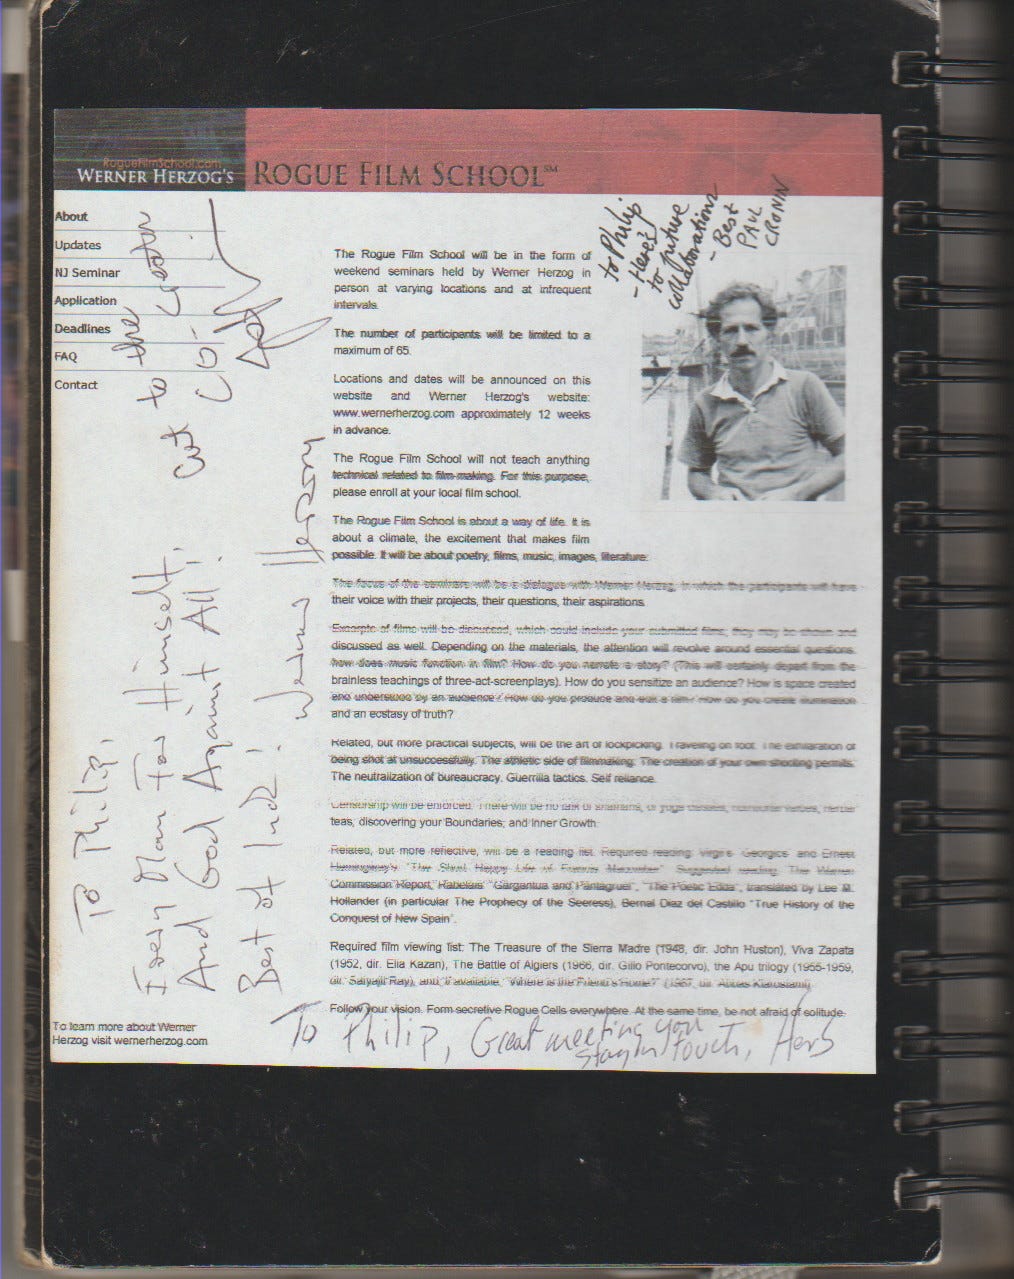 RogueFilmSchool.com
WERNER HERZOG'S ROGUE FILM SCHOOL SM
About
Updates
NJ Seminar
Application
Deadlines
FAQ
Contact
The Rogue Film School will be in the form of
weekend seminars held by Werner Herzog in
person at varying locations and at infrequent
intervals.
The number of participants will be limited to a
maximum of 65.
Locations and dates will be announced on this
website and Werner Herzog's website:
www.wernerherzog.com approximately 12 weeks
in advance.
The Rogue Film School will not teach anything
technical related to film-making. For this purpose,
please enroll at your local film school.
The Rogue Film School is about a way of life. It is
about a climate, the excitement that makes film
possible. It will be about poetry, films, music, images, literature.
The focus of the seminars will be a dialogue with Werner Herzog, in which the participants will have
their voice with their projects, their questions, their aspirations.
Excerpts of films will be discussed, which could include your submitted films, they may be shown and
discussed as well. Depending on the materials, the attention will revolve around essential questions:
how does music function in film? How do you narrate a story? (This will certainly depart from the
brainless teachings of three-act-screenplays). How do you sensitize an audience? How is space created
and understood by an audience? How do you produce and edit a film? How do you create illumination
and an ecstasy of truth?
Related, but more practical subjects, will be the art of lockpicking. Traveling on foot. The exhilaration of
being shot at unsuccessfully. The athletic side of filmmaking. The creation of your own shooting permits.
The neutralization of bureaucracy. Guerrilla tactics. Self reliance.
Censorship will be enforced. There will be no talk of shamans, of yoga classes, nutritional values, herbal
teas, discovering your Boundaries, and Inner Growth.
Related, but more reflective, will be a reading list. Required reading: Virgil's "Georgics" and Ernest
Hemingway's "The Short Happy Life of Francis Macomber". Suggested reading: The Warren
Commission Report, Rabelais' "Gargantua and Pantagruel", "The Poetic Edda", translated by Lee M.
Hollander (in particular The Prophecy of the Seeress), Bernal Diaz del Castillo "True History of the
Conquest of New Spain".
Required film viewing list: The Treasure of the Sierra Madre (1948, dir. John Huston), Viva Zapata
(1952, dir. Elia Kazan), The Battle of Algiers (1966, dir. Gillo Pontecorvo), the Apu trilogy (1955-1959,
dir. Satyajit Ray), and, if available, "Where is the Friend's Home?" (1987, dir. Abbas Kiarostami).
Follow your vision. Form secretive Rogue Cells everywhere. At the same time, be not afraid of solitude.
To learn more about Werner
Herzog visit wernerherzog.com
To Philip
- Here's
to future
collaborations
- Best
PAUL
CRONIN
To Philip,
Every Man For Himself,
And God Against All!
Best of luck! Werner Herzog
to the
co-creator
To Philip, Great meeting you
Stay in touch, Herb